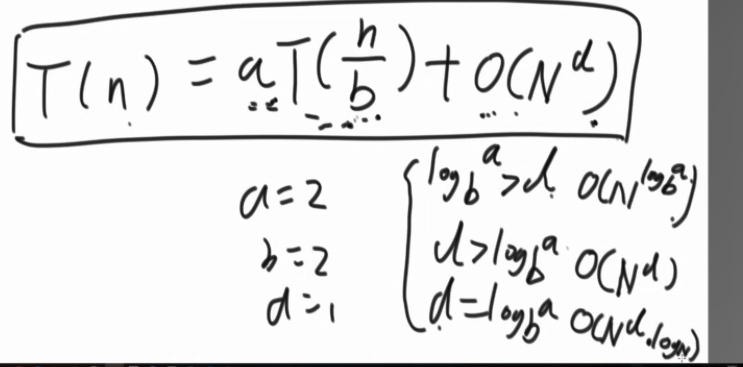 T(n) = aT(n/b) + O(N^d)
a=2
b=2
d=1
log_b^a > d O(N^(log_b^a))
d > log_b^a O(N^d)
d = log_b^a O(N^d·logN)